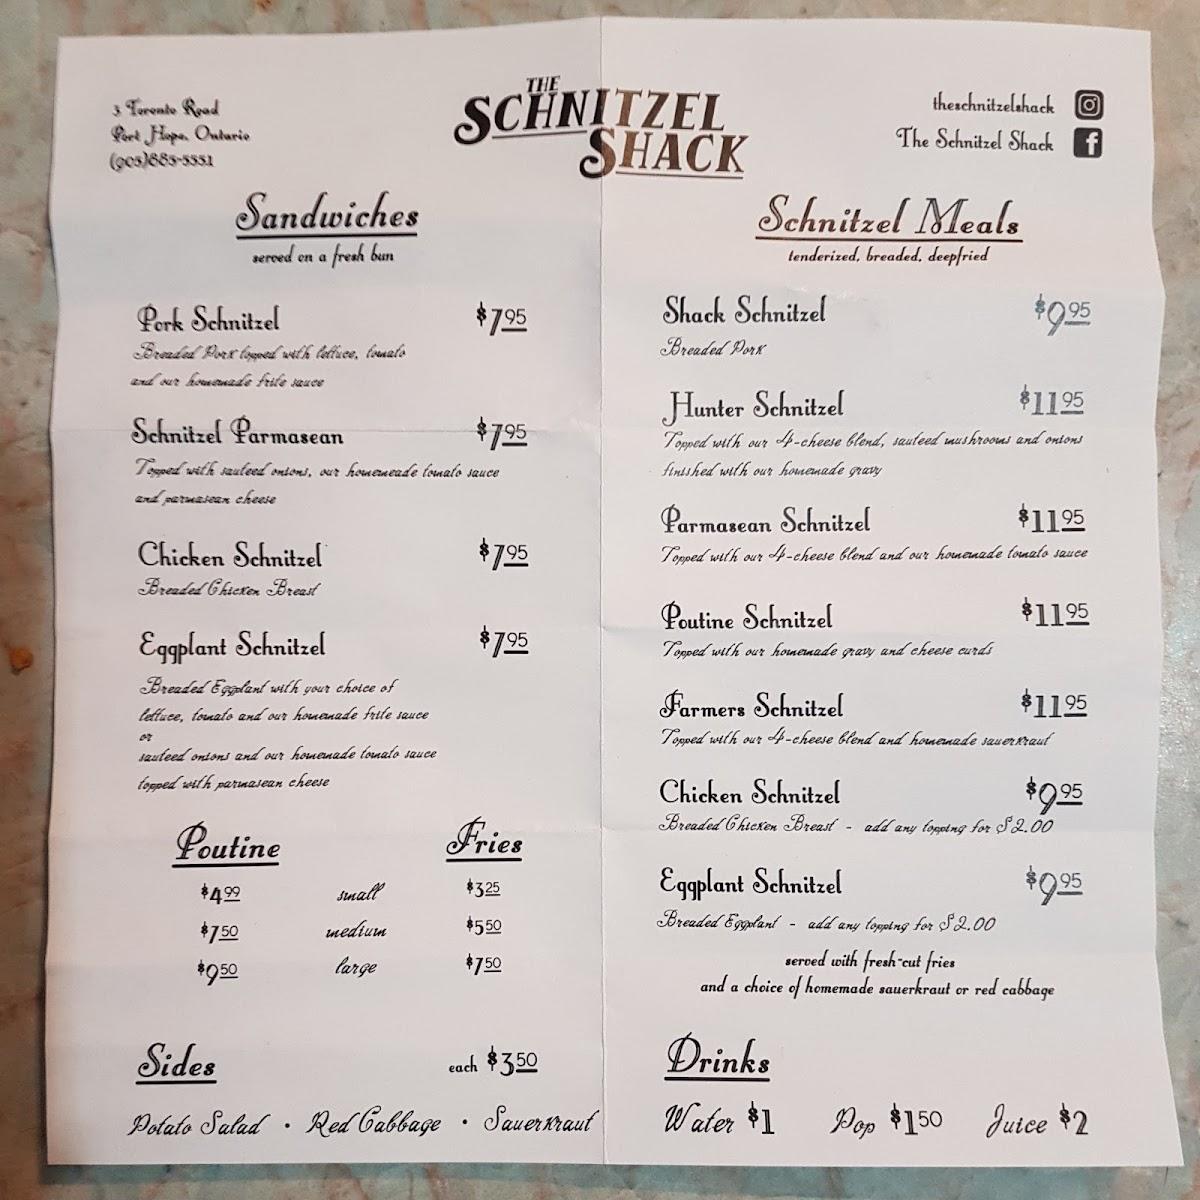 3 Toronto Road
Port Hope, Ontario
(905)885-5551
THE
SCHNITZEL
SHACK
theschnitzelshack
The Schnitzel Shack
Sandwiches
served on a fresh bun
Pork Schnitzel $7.95
Breaded Pork topped with lettuce, tomato
and our homemade frite sauce
Schnitzel Parmasean $7.95
Topped with sauteed onions, our homemeade tomato sauce
and parmasean cheese
Chicken Schnitzel $7.95
Breaded Chicken Breast
Eggplant Schnitzel $7.95
Breaded Eggplant with your choice of
lettuce, tomato and our homemade frite sauce
or
sauteed onions and our homemade tomato sauce
topped with parmasean cheese
Poutine Fries
$4.99 small $3.25
$7.50 medium $5.50
$9.50 large $7.50
Sides each $3.50
Potato Salad • Red Cabbage • Sauerkraut
Schnitzel Meals
tenderized, breaded, deepfried
Shack Schnitzel $9.95
Breaded Pork
Hunter Schnitzel $11.95
Topped with our 4-cheese blend, sauteed mushrooms and onions
finished with our homemade gravy
Parmasean Schnitzel $11.95
Topped with our 4-cheese blend and our homemade tomato sauce
Poutine Schnitzel $11.95
Topped with our homemade gravy and cheese curds
Farmers Schnitzel $11.95
Topped with our 4-cheese blend and homemade sauerkraut
Chicken Schnitzel $9.95
Breaded Chicken Breast - add any topping for $2.00
Eggplant Schnitzel $9.95
Breaded Eggplant - add any topping for $2.00
served with fresh-cut fries
and a choice of homemade sauerkraut or red cabbage
Drinks
Water $1 Pop $1.50 Juice $2